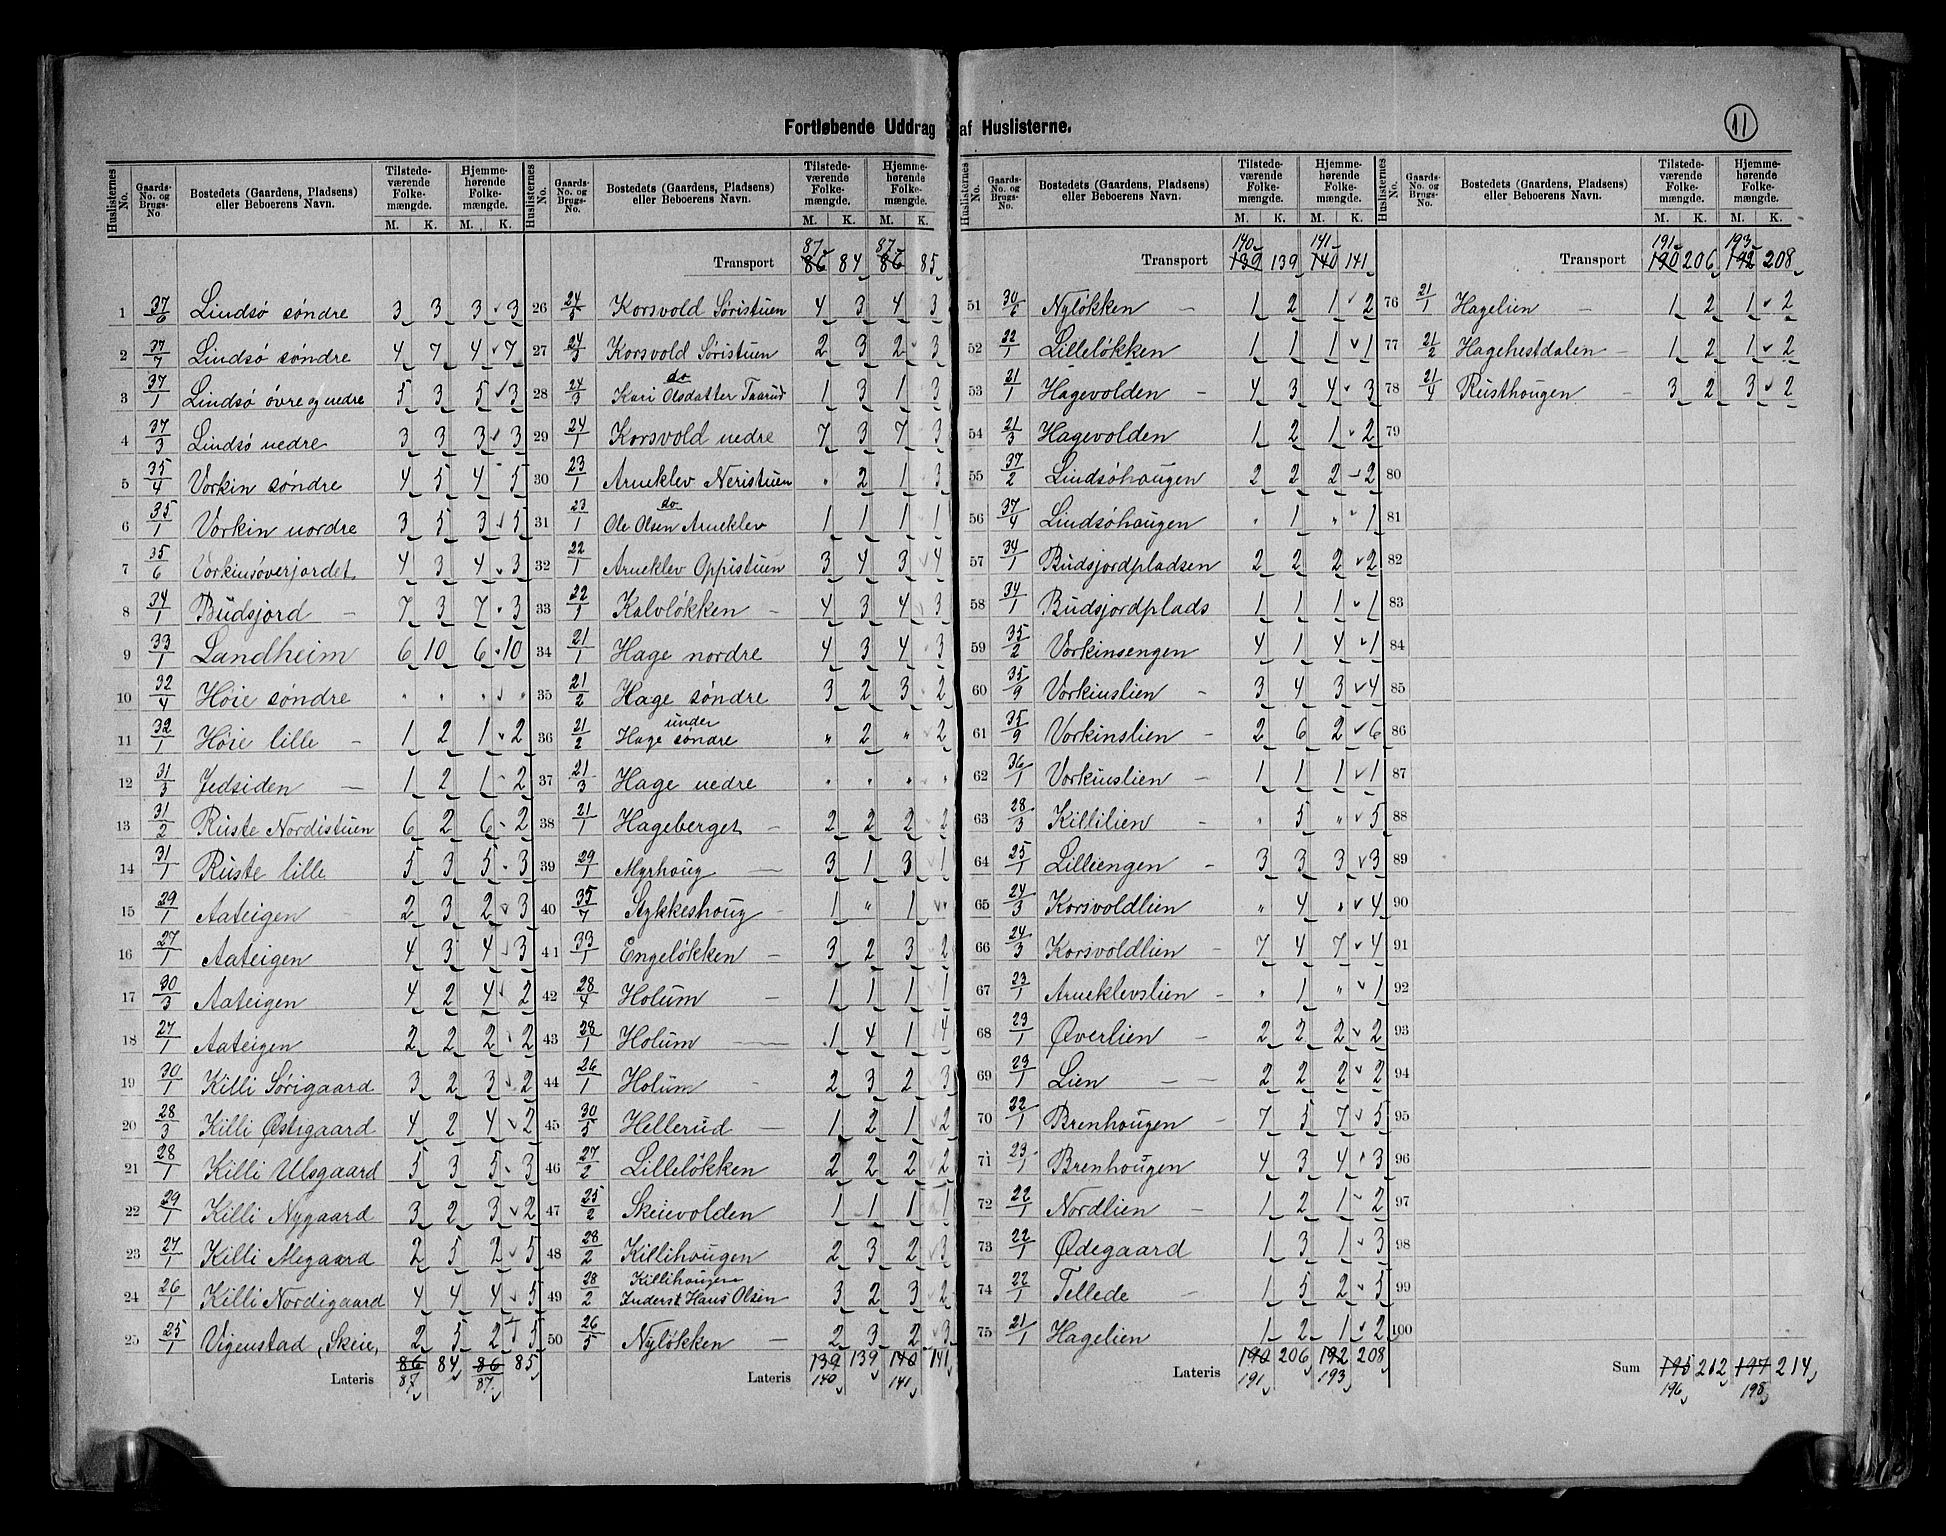 Fortløbende Uddrag af Huslisterne.
11
Huslisternes No. | Gaards-No. og Brugs-No | Bostedets (Gaardens, Pladsens) eller Beboerens Navn. | Tilstedeværende Folkemængde. M. K. | Hjemmehørende Folkemængde. M. K.
1 37/6 Lindsø søndre 3 3 3 3
2 37/7 Lindsø søndre 4 7 4 7
3 37/1 Lindsø øvre og nedre 5 3 5 3
4 37/3 Lindsø nedre 3 3 3 3
5 35/4 Vorkin søndre 4 5 4 5
6 35/1 Vorkin nordre 3 5 3 5
7 35/6 Vorkinsøverjordet 4 3 4 3
8 34/1 Budsjord – 7 3 7 3
9 33/1 Landheim 6 10 6 10
10 32/4 Høie søndre . . . .
11 32/1 Høie lille – 1 2 1 2
12 31/3 Jedsiden – 1 2 1 2
13 31/2 Ruste Nordistuen 6 2 6 2
14 31/1 Ruste lille 5 3 5 3
15 29/1 Aateigen 2 3 2 3
16 27/1 Aateigen 4 3 4 3
17 30/3 Aateigen 4 2 4 2
18 27/1 Aateigen 2 2 2 2
19 30/1 Killi Sørigaard 3 2 3 2
20 28/3 Killi Østigaard 4 2 4 2
21 28/1 Killi Ulsgaard 5 3 5 3
22 29/1 Killi Nygaard 3 2 3 2
23 27/1 Killi Megaard 2 5 2 5
24 26/1 Killi Nordigaard 4 4 4 5
25 25/1 Vigenstad, Skeie, 2 5 2 5
Lateris 86 84 86 85
87 87
Huslisternes No. | Gaards-No. og Brugs-No. | Bostedets (Gaardens, Pladsens) eller Beboerens Navn. | Tilstedeværende Folkemængde. M. K. | Hjemmehørende Folkemængde. M. K.
87 87
Transport 86 84 86 85
26 24/5 Korsvold Søristuen 4 3 4 3
27 24/3 Korsvold Søristuen 2 3 2 3
do
28 24/3 Kari Olsdatter Taarud 1 3 1 3
29 24/1 Korsvold nedre 7 3 7 3
30 23/1 Arneklev Neristuen . 2 1 3
do
31 23/1 Ole Olsen Arneklev 1 1 1 1
32 22/1 Arneklev Oppistuen 3 4 3 4
33 22/1 Kalvløkken – 4 3 4 3
34 21/1 Hage nordre 4 3 4 3
35 21/2 Hage søndre 3 2 3 2
under
36 21/2 Hage søndre " 2 " 2
37 21/3 Hage nedre . . . .
38 21/1 Hageberget – 2 2 2 2
39 29/1 Myrhoug – 3 1 3 1
40 35/7 Stykkeshoug – 1 " 1 "
41 33/1 Engeløkken – 3 2 3 2
42 28/4 Holum – 1 1 1 1
43 28/1 Holum – 1 4 1 4
44 26/1 Holum – 2 3 2 3
45 30/5 Hellerud – 1 2 1 2
46 27/2 Lilleløkken 2 2 2 2
47 25/2 Skeievolden 1 1 1 1
48 28/2 Killihougen 2 3 2 3
Killihougen
49 28/2 Inderst Hans Olsen 3 2 3 2
50 26/5 Nyløkken – 2 3 2 3
Lateris 139 139 140 141
140 141
Huslisternes No. | Gaards-No. og Brugs-No. | Bostedets (Gaardens, Pladsens) eller Beboerens Navn. | Tilstedeværende Folkemængde. M. K. | Hjemmehørende Folkemængde. M. K.
140 141
Transport 139 139 140 141
51 30/6 Nyløkken – 1 2 1 2
52 32/1 Lilleløkken 1 1 1 1
53 21/1 Hagevolden – 4 3 4 3
54 21/3 Hagevolden 1 2 1 2
55 37/2 Lindsøhougen 2 2 2 2
56 37/4 Lindsøhougen " 1 " 1
57 34/1 Budsjordpladsen 2 2 2 2
58 34/1 Budsjordplads 1 1 1 1
59 35/2 Vorkinsengen 4 1 4 1
60 35/9 Vorkinslien – 3 4 3 4
61 35/9 Vorkinslien – 2 6 2 6
62 36/1 Vorkinslien – 1 1 1 1
63 28/3 Killilien – " 5 " 5
64 25/1 Lilleengen – 3 3 3 3
65 24/3 Korsvoldlien " 4 " 4
66 24/3 Korsvoldlien – 7 4 7 4
67 23/1 Arneklevslien – " 1 " 1
68 23/1 Øverlien – 2 2 2 2
69 23/1 Lien – – 2 2 2 2
70 32/1 Brenhougen – 7 5 7 5
71 23/1 Brenhougen 4 3 4 3
72 22/1 Nordlien – 1 2 1 2
73 22/1 Ødegaard 1 3 1 3
74 22/1 Tellede – 1 5 2 5
75 21/1 Hagelien 1 2 1 2
Lateris 190 206 192 208
191 193
Huslisternes No. | Gaards-No. og Brugs-No. | Bostedets (Gaardens, Pladsens) eller Beboerens Navn. | Tilstedeværende Folkemængde. M. K. | Hjemmehørende Folkemængde. M. K.
191 193
Transport 190 206 192 208
76 21/1 Hagelien – 1 2 1 2
77 21/2 Hagehestdalen – 1 2 1 2
78 21/4 Rusthougen – 3 2 3 2
79
80
81
82
83
84
85
86
87
88
89
90
91
92
93
94
95
96
97
98
99
100
Sum 195 212 197 214
196 198